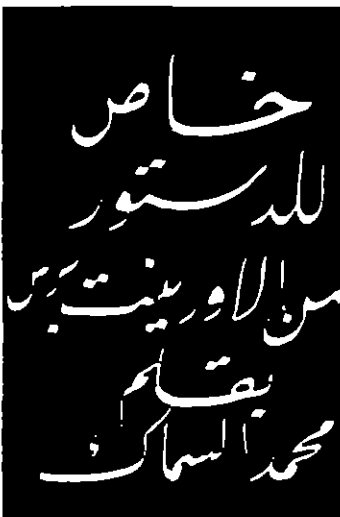 خاص
للدستور
من الاورينت برس
بقلم
محمد السماك